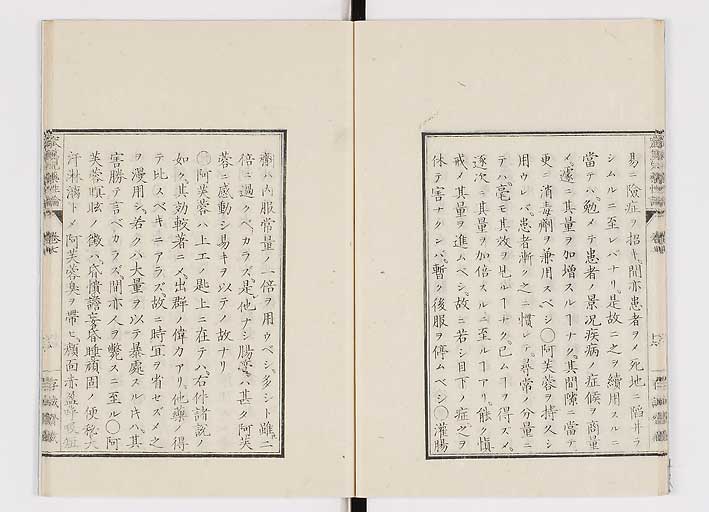 易ニ險症ヲ招キ間亦患者ヲメ死地ニ陷井ヲ
シムルニ至レバナリ是故ニ之ヲ續用スルニ
當テハ勉メテ患者ノ景况疾病ノ症候ヲ商量
イ遽ニ其量ヲ加増スルヿナク其間隙ニ當テ
更ニ消毒劑ヲ兼用スベシ〇阿芙蓉ヲ持久シ
用ウレバ患者漸ク之ニ慣レテ尋常ノ分量ニ
テハ毫モ其效ヲ見ルヿナク已ムヿヲ得スメ
逐次ニ其量ヲ加倍スルニ至ルヿアリ能ク愼
戒ノ其量ヲ進ムベシ故ニ若シ目下ノ症之ヲ
休テ害ナクンバ暫ク後服ヲ停ムベシ〇灌腸
劑ハ内服常量ノ一倍ヲ用ウベシ多シト雖二
倍ニ過クベカラズ是他ナシ腸ハ甚ク阿芙
蓉ニ感動シ易キヲ以テノ故ナリ
阿芙蓉ハ上エノ匙上ニ在テハ右件諸説ノ
如ク其効較著ニメ出群ノ偉力アリ他藥ノ得
テ比スベキニアラズ故ニ時宜ヲ省セズメ之
ヲ漫用シ若クハ大量ヲ以テ暴處スルキハ其
害勝テ言ベカラズ間亦人ヲ斃スニ至ル〇阿
芙蓉瞑眩ノ徴ハ昏憒譫妄昏睡頑固ノ便秘大
汗淋漓トメ阿芙蓉臭ヲ帶ヒ顔面赤